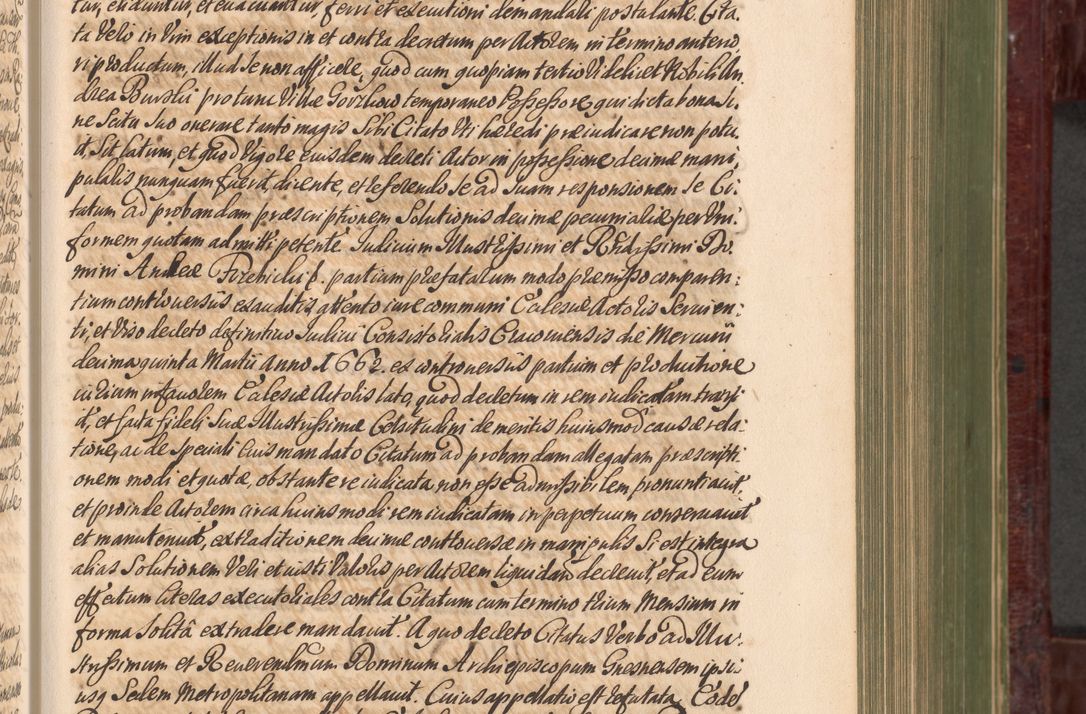 tur, eliduntur, et evacuantur, ferri et executioni demandali postulante. Cita,
ta Velo in Vim exceptionis in et contra decretum per Actorem in termino anterio,
ri productum, illud se non afficere, quod cum quopiam tertio Videlicet Nobili An
drea Burski pro tunc Villae Gorzkow temporaneo Possessore qui dicta bona si,
ne Scitu Suo onerare tanto magis Sibi Citato Uti haeredi praeiudicare non potu,
it, Sit latum, et quod Vigore eiusdem decreti Actor in possessione decimae mani,
pulalis nunquam fuerit, dicente, et referendo Se ad Suam responsionem Se Ci:
tatum ad probandam praescriptionem Solutionis decimae pecunialis per Uni
formem quotam admitti petente. Iudicium Illustrissimi et Rndissimi Do,
mini Andreae Trzebicki E. partium praefatarum modo praemisso comparen:
tium controversiis exauditis, attento iure communi Ecclesiae Actoris Servien:
ti, et Viso decreto definitivo Iudicii Consistorialis Cracoviensis die Mercurii
decima quinta Martii Anno 1662. ex controversiis partium et productione
iurium in favorem Ecclesiae Actoris lato, quod decretum in rem iudicatam transy
it, et facta fideli Suae Illustrissimae Celsitudini de meritis huiusmodi causae rela:
tione, ac de Speciali Eius mandato Citatum ad probandam allegatam praescripti
onem modi et quotae, obstante re iudicata non esse admissibilem pronuntiavit,
et proinde Actorem circa huiusmodi rem iudicatam in perpetuum conservavit
et manutenuit, extraditionem decimae controversae in manipulis Si est integra
alias Solutionem Veri et iusti Valoris per Actorem liquidan decrevit, et ad eum
effectum literas executoriales contra Citatum cum termino trium Mensium in
forma Solita extradere mandavit. A quo decreto Citatus Verbo ad Illu:
strissimum et Reverendmum Dominum Archiepiscopum Gnesnensem ipsi:
usq Sedem Metropolitanam appellavit. Cuius appellatio est refutata. Eode